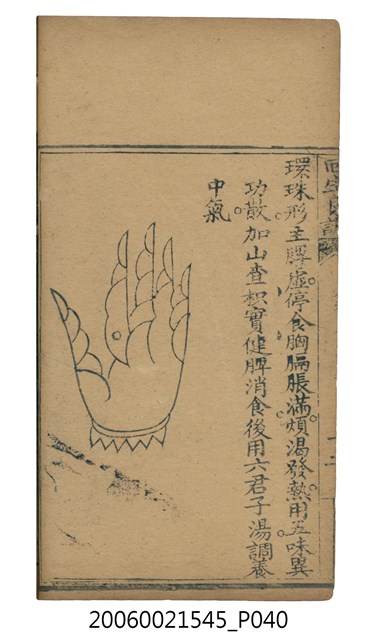 環珠形主脾虛停食胸膈脹滿煩渴發熱用五味異
功散加山查枳實健脾消食後用六君子湯調養
中氣
20060021545_P040